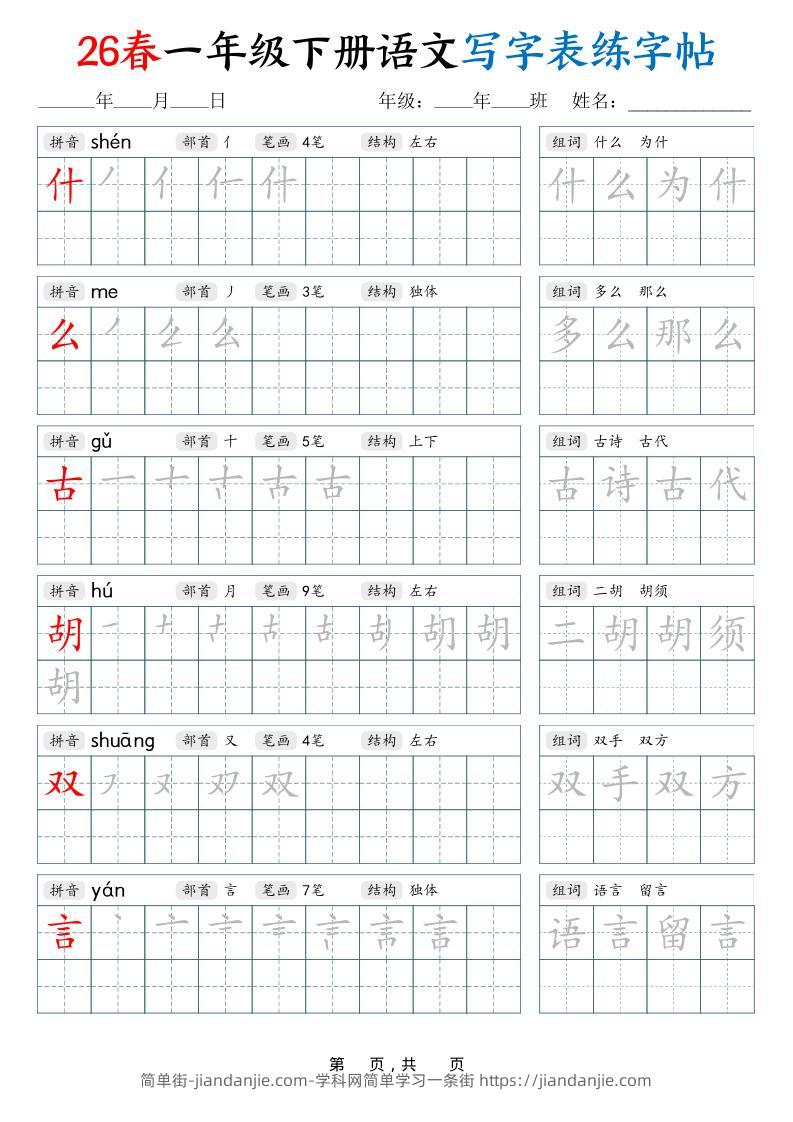 26春一年级下册语文写字表练字帖
______年____月____日 年级：____年____班 姓名：____________
拼音 shén 部首 亻 笔画 4笔 结构 左右 组词 什么 为什
什 丿 亻 仁 什 什 么 为 什
拼音 me 部首 丿 笔画 3笔 结构 独体 组词 多么 那么
么 丿 厶 么 多 么 那 么
拼音 gǔ 部首 十 笔画 5笔 结构 上下 组词 古诗 古代
古 一 十 古 古 古 古 诗 古 代
拼音 hú 部首 月 笔画 9笔 结构 左右 组词 二胡 胡须
胡 一 十 古 古 古 胡 胡 胡 二 胡 胡 须
胡
拼音 shuāng 部首 又 笔画 4笔 结构 左右 组词 双手 双方
双 フ 又 双 双 双 手 双 方
拼音 yán 部首 言 笔画 7笔 结构 独体 组词 语言 留言
言 丶 亠 言 言 言 言 言 语 言 留 言
第 页，共 页
简单街-jiandanjie.com-学科网简单学习一条街 https://jiandanjie.com